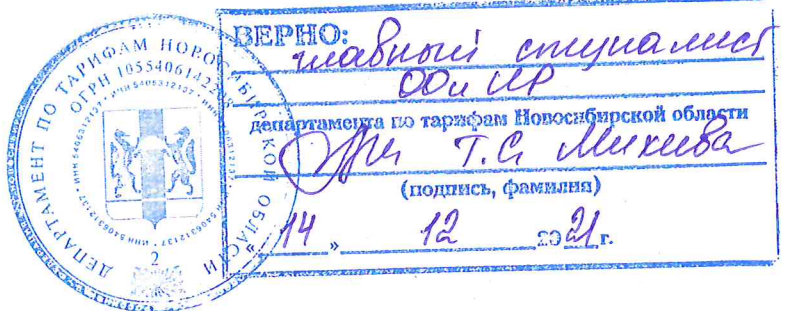 ДЕПАРТАМЕНТ ПО ТАРИФАМ НОВОСИБИРСКОЙ ОБЛАСТИ
ОГРН
ИНН 5405312137
2
ВЕРНО:
главный специалист
ООиКР
департамента по тарифам Новосибирской области
Т.С. Михеева
(подпись, фамилия)
14 » 12 2021 г.